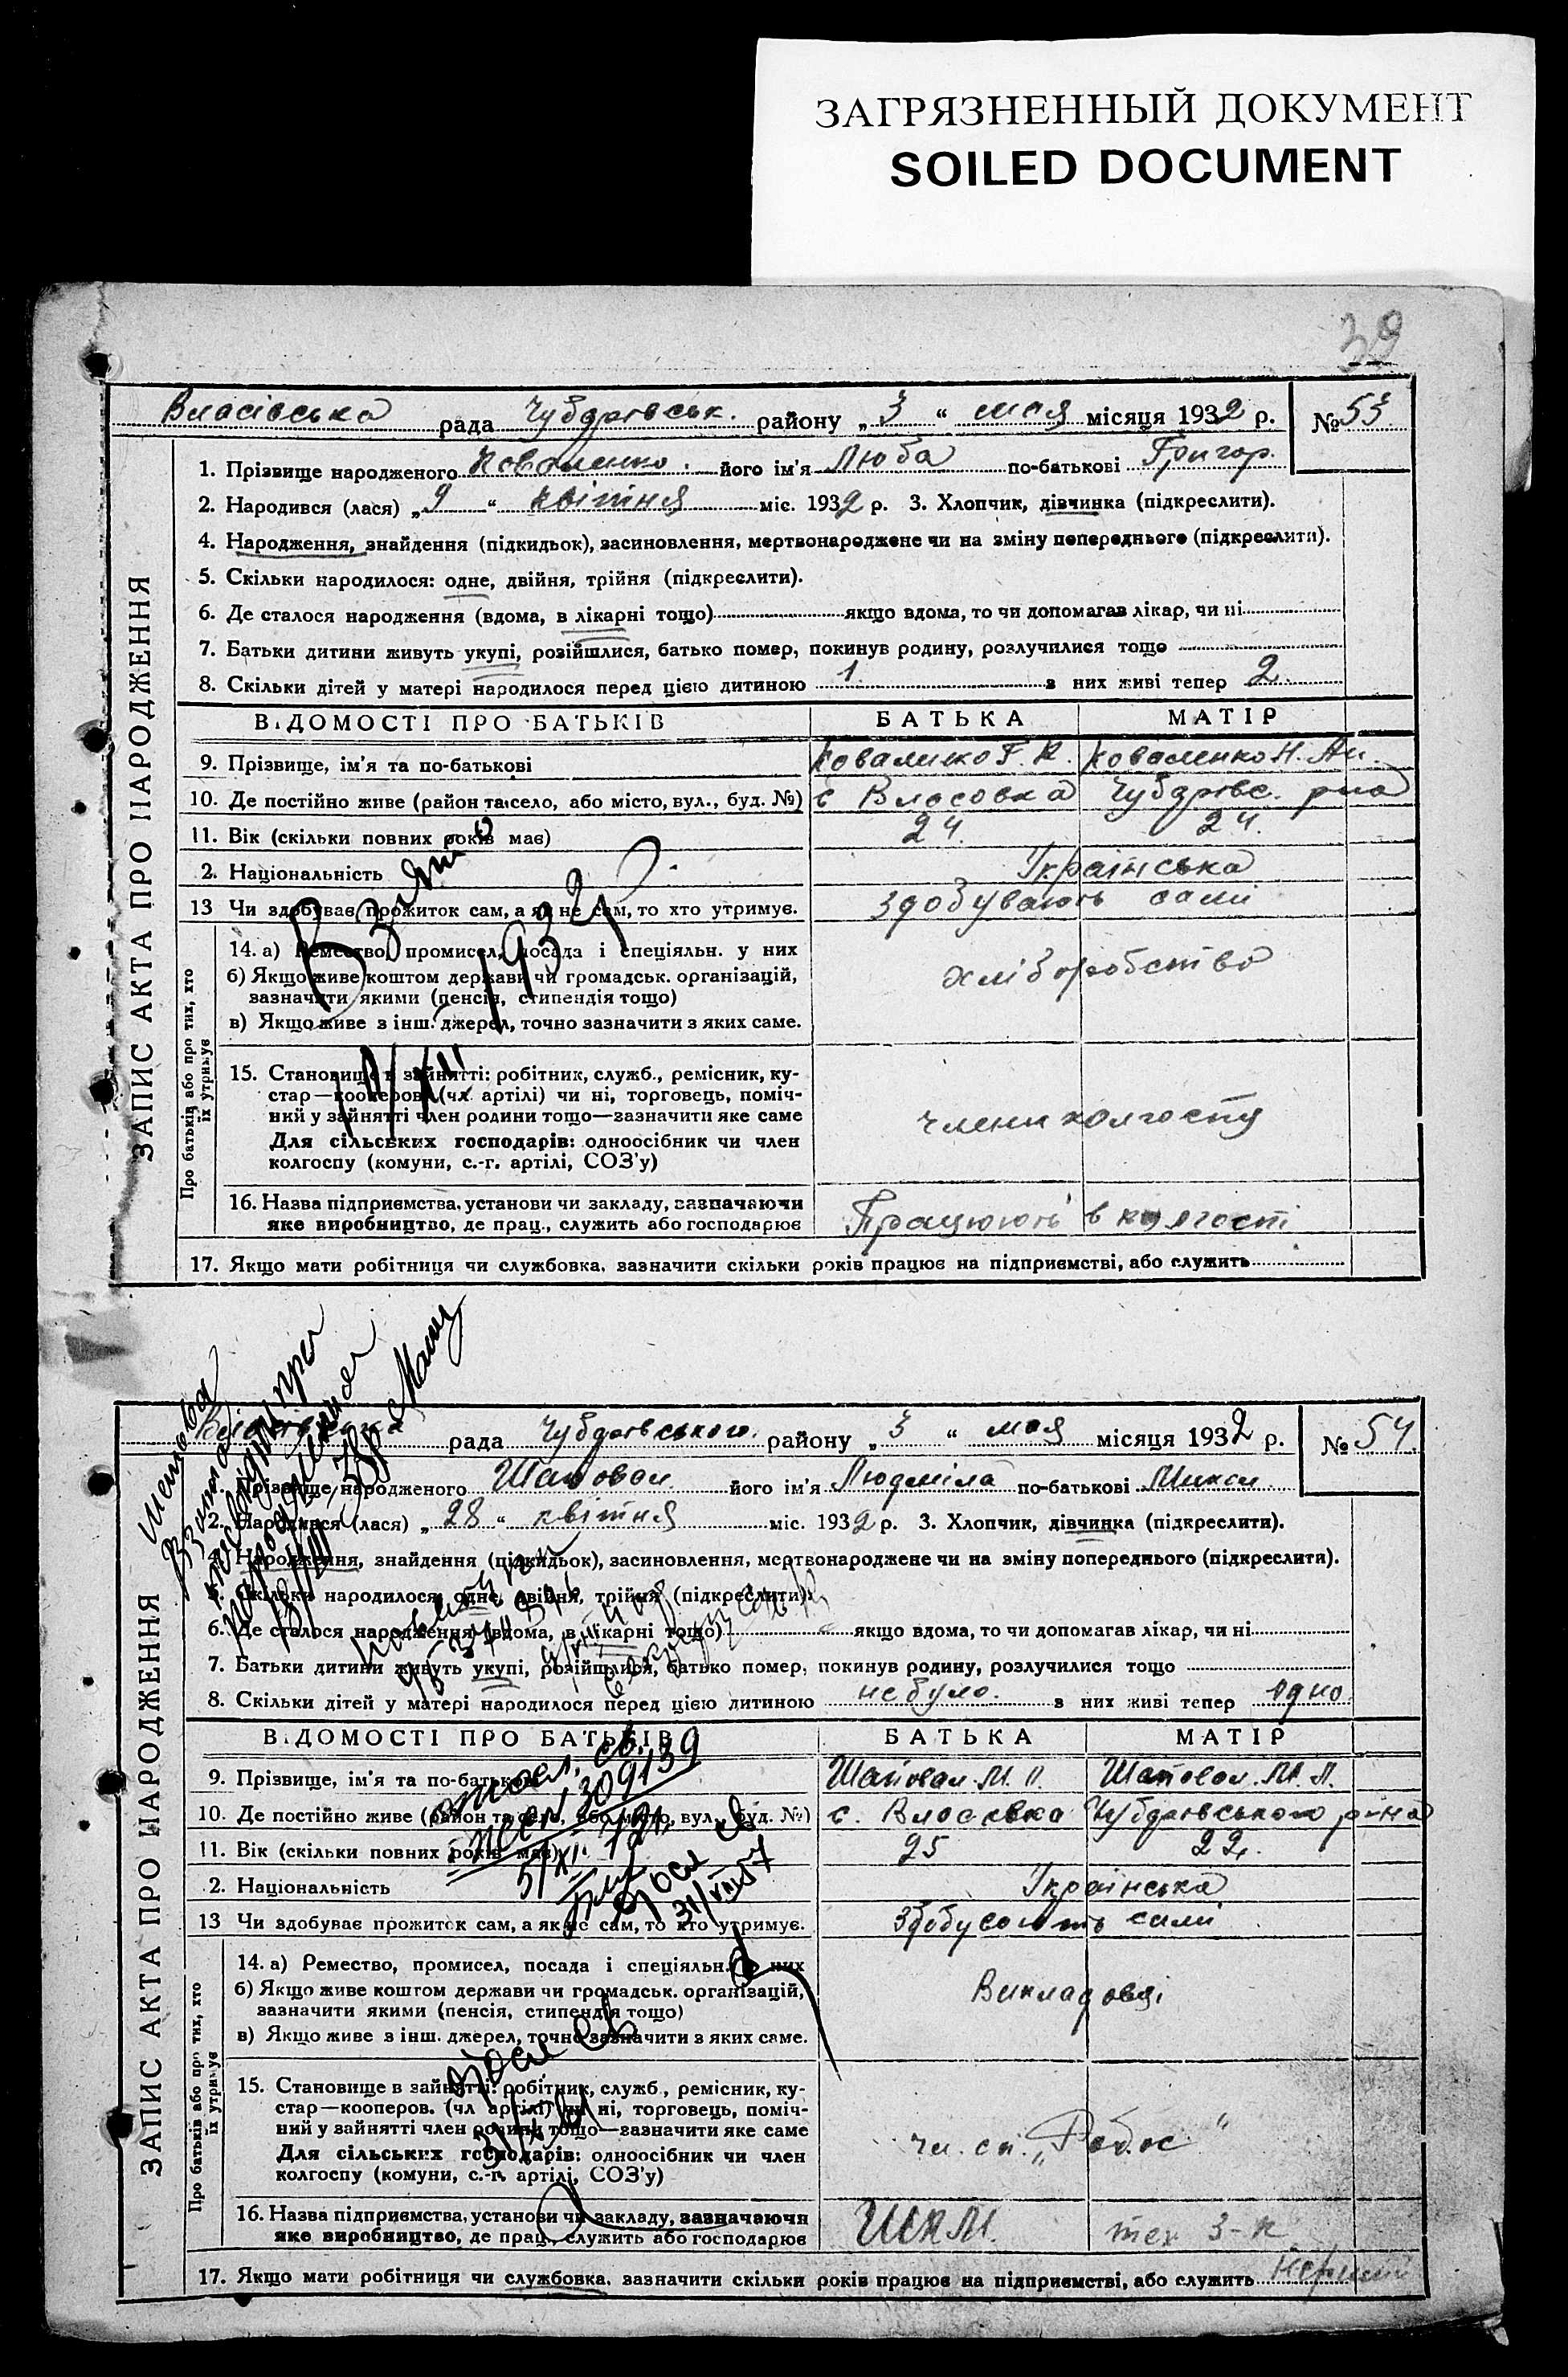 ЗАГРЯЗНЕННЫЙ ДОКУМЕНТ
SOILED DOCUMENT
39
Власівська рада Чубарівськ. району „3“ мая місяця 1932 р. № 53.
ЗАПИС АКТА ПРО НАРОДЖЕННЯ
1. Прізвище народженого Коваленко. його ім'я Люба по-батькові Григор.
2. Народився (лася) „9“ квітня міс. 1932 р. 3. Хлопчик, дівчинка (підкреслити).
4. Народження, знайдення (підкидьок), засиновлення, мертвонароджене чи на зміну попереднього (підкреслити).
5. Скільки народилося: одне, двійня, трійня (підкреслити).
6. Де сталося народження (вдома, в лікарні тощо) якщо вдома, то чи допомагав лікар, чи ні
7. Батьки дитини живуть укупі, розійшлися, батько помер, покинув родину, розлучилися тощо
8. Скільки дітей у матері народилося перед цією дитиною 1. з них живі тепер 2.
ВІДОМОСТІ ПРО БАТЬКІВ БАТЬКА МАТІР
9. Прізвище, ім'я та по-батькові Коваленко Г. К. Коваленко Н. Ан.
10. Де постійно живе (район та село, або місто, вул., буд. №) с Власовка Чубарівс. рна
11. Вік (скільки повних років має) 24. 24.
2. Національність Українська
13 Чи здобуває прожиток сам, а як не сам, то хто утримує. здобувають самі
Про батьків або про тих, хто їх утримує
14. а) Ремество, промисел, посада і спеціяльн. у них
б) Якщо живе коштом держави чи громадськ. організацій,
зазначити якими (пенсія, стипендія тощо)
хліборобство
в) Якщо живе з інш. джерел, точно зазначити з яких саме.
15. Становище в зайнятті: робітник, служб., ремісник, ку-
стар—кооперов. (чл. артілі) чи ні, торговець, поміч-
ний у зайнятті член родини тощо—зазначити яке саме
члени колгоспу
Для сільських господарів: одноосібник чи член
колгоспу (комуни, с.-г. артілі, СОЗ'у)
16. Назва підприємства, установи чи закладу, зазначаючи
яке виробництво, де прац., служить або господарює Працюють в колгоспі
17. Якщо мати робітниця чи службовка, зазначити скільки років працює на підприємстві, або служить
Взято
1932
рада Чубарівського. району „3“ мая місяця 1932 р. № 54.
ЗАПИС АКТА ПРО НАРОДЖЕННЯ
Прізвище народженого Шаповал. його ім'я Людміла по-батькові Микол.
2. Народився (лася) „28“ квітня міс. 1932 р. 3. Хлопчик, дівчинка (підкреслити).
Народження, знайдення (підкидьок), засиновлення, мертвонароджене чи на зміну попереднього (підкреслити).
Скільки народилося: одне, двійня, трійня (підкреслити).
6. Де сталося народження (вдома, в лікарні тощо) якщо вдома, то чи допомагав лікар, чи ні
7. Батьки дитини живуть укупі, розійшлися, батько помер, покинув родину, розлучилися тощо
8. Скільки дітей у матері народилося перед цією дитиною не було. з них живі тепер одно.
ВІДОМОСТІ ПРО БАТЬКІВ БАТЬКА МАТІР
9. Прізвище, ім'я та по-батькові Шаповал. М. П. Шаповал. М. Л.
10. Де постійно живе (район та село, або місто, вул., буд. №) с. Власівка Чубарівського р-на
11. Вік (скільки повних років має) 25 22.
2. Національність Українська
13 Чи здобуває прожиток сам, а як не сам, то хто утримує. здобувають самі
Про батьків або про тих, хто їх утримує
14. а) Ремество, промисел, посада і спеціяльн. у них
б) Якщо живе коштом держави чи громадськ. організацій,
зазначити якими (пенсія, стипендія тощо)
Викладовці
в) Якщо живе з інш. джерел, точно зазначити з яких саме.
15. Становище в зайнятті: робітник, служб., ремісник, ку-
стар—кооперов. (чл. артілі) чи ні, торговець, поміч-
ний у зайнятті член родини тощо—зазначити яке саме
чл. сп. „Робос“
Для сільських господарів: одноосібник чи член
колгоспу (комуни, с.-г. артілі, СОЗ'у)
16. Назва підприємства, установи чи закладу, зазначаючи
яке виробництво, де прац., служить або господарює ШКМ.
17. Якщо мати робітниця чи службовка, зазначити скільки років працює на підприємстві, або служить